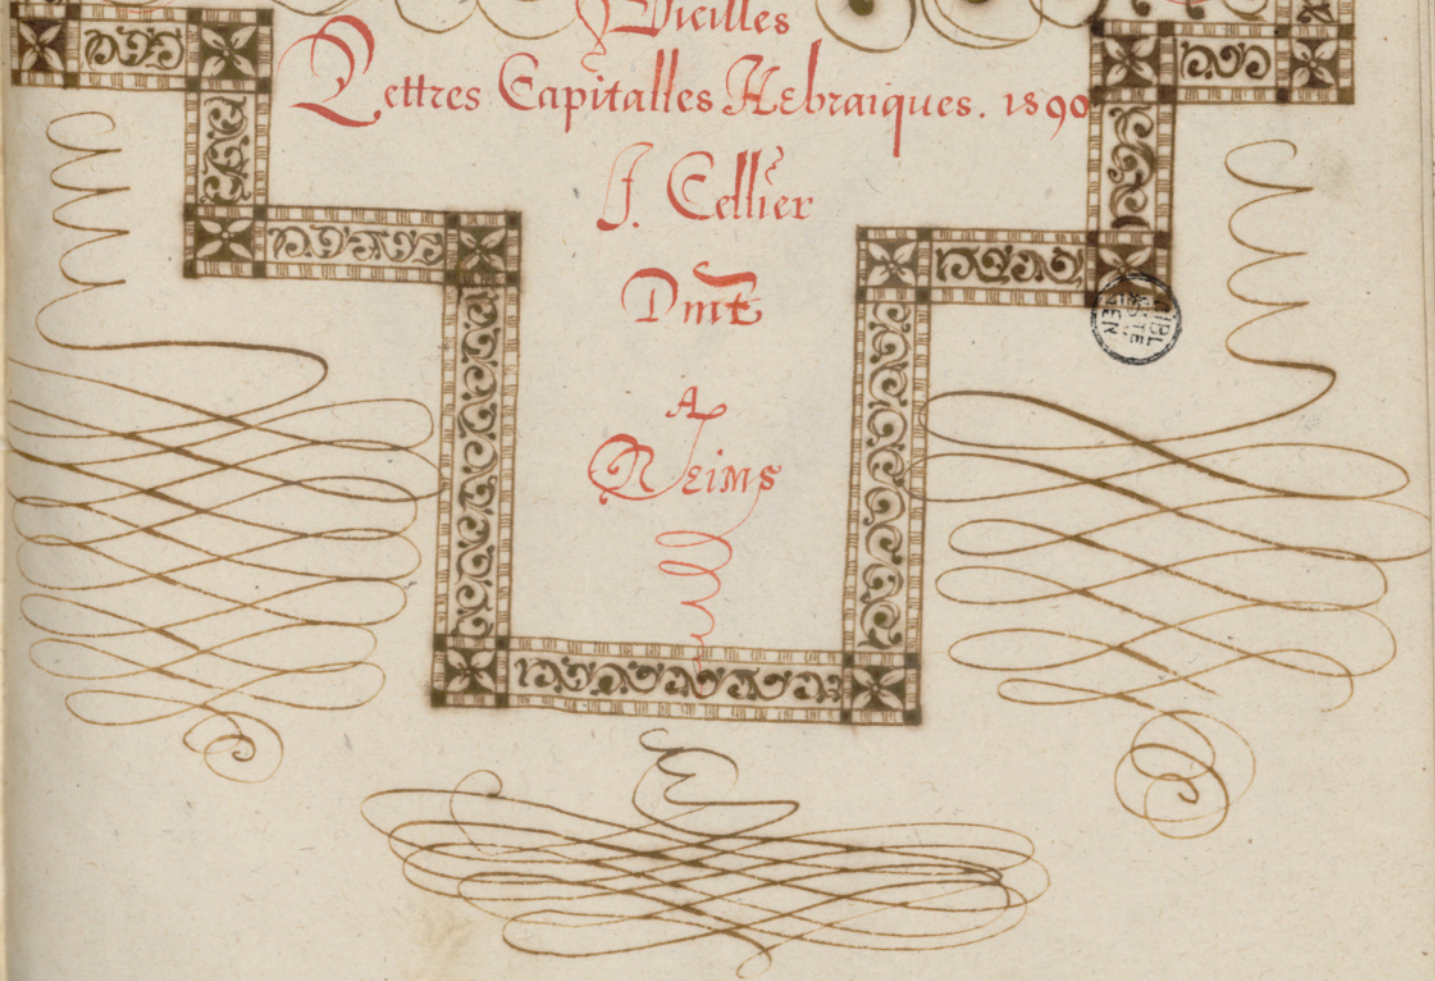 Vieilles
Lettres Capitalles Hebraiques. 1890
J. Cellier
Dmt
A
Reims
BIBL
ESTE